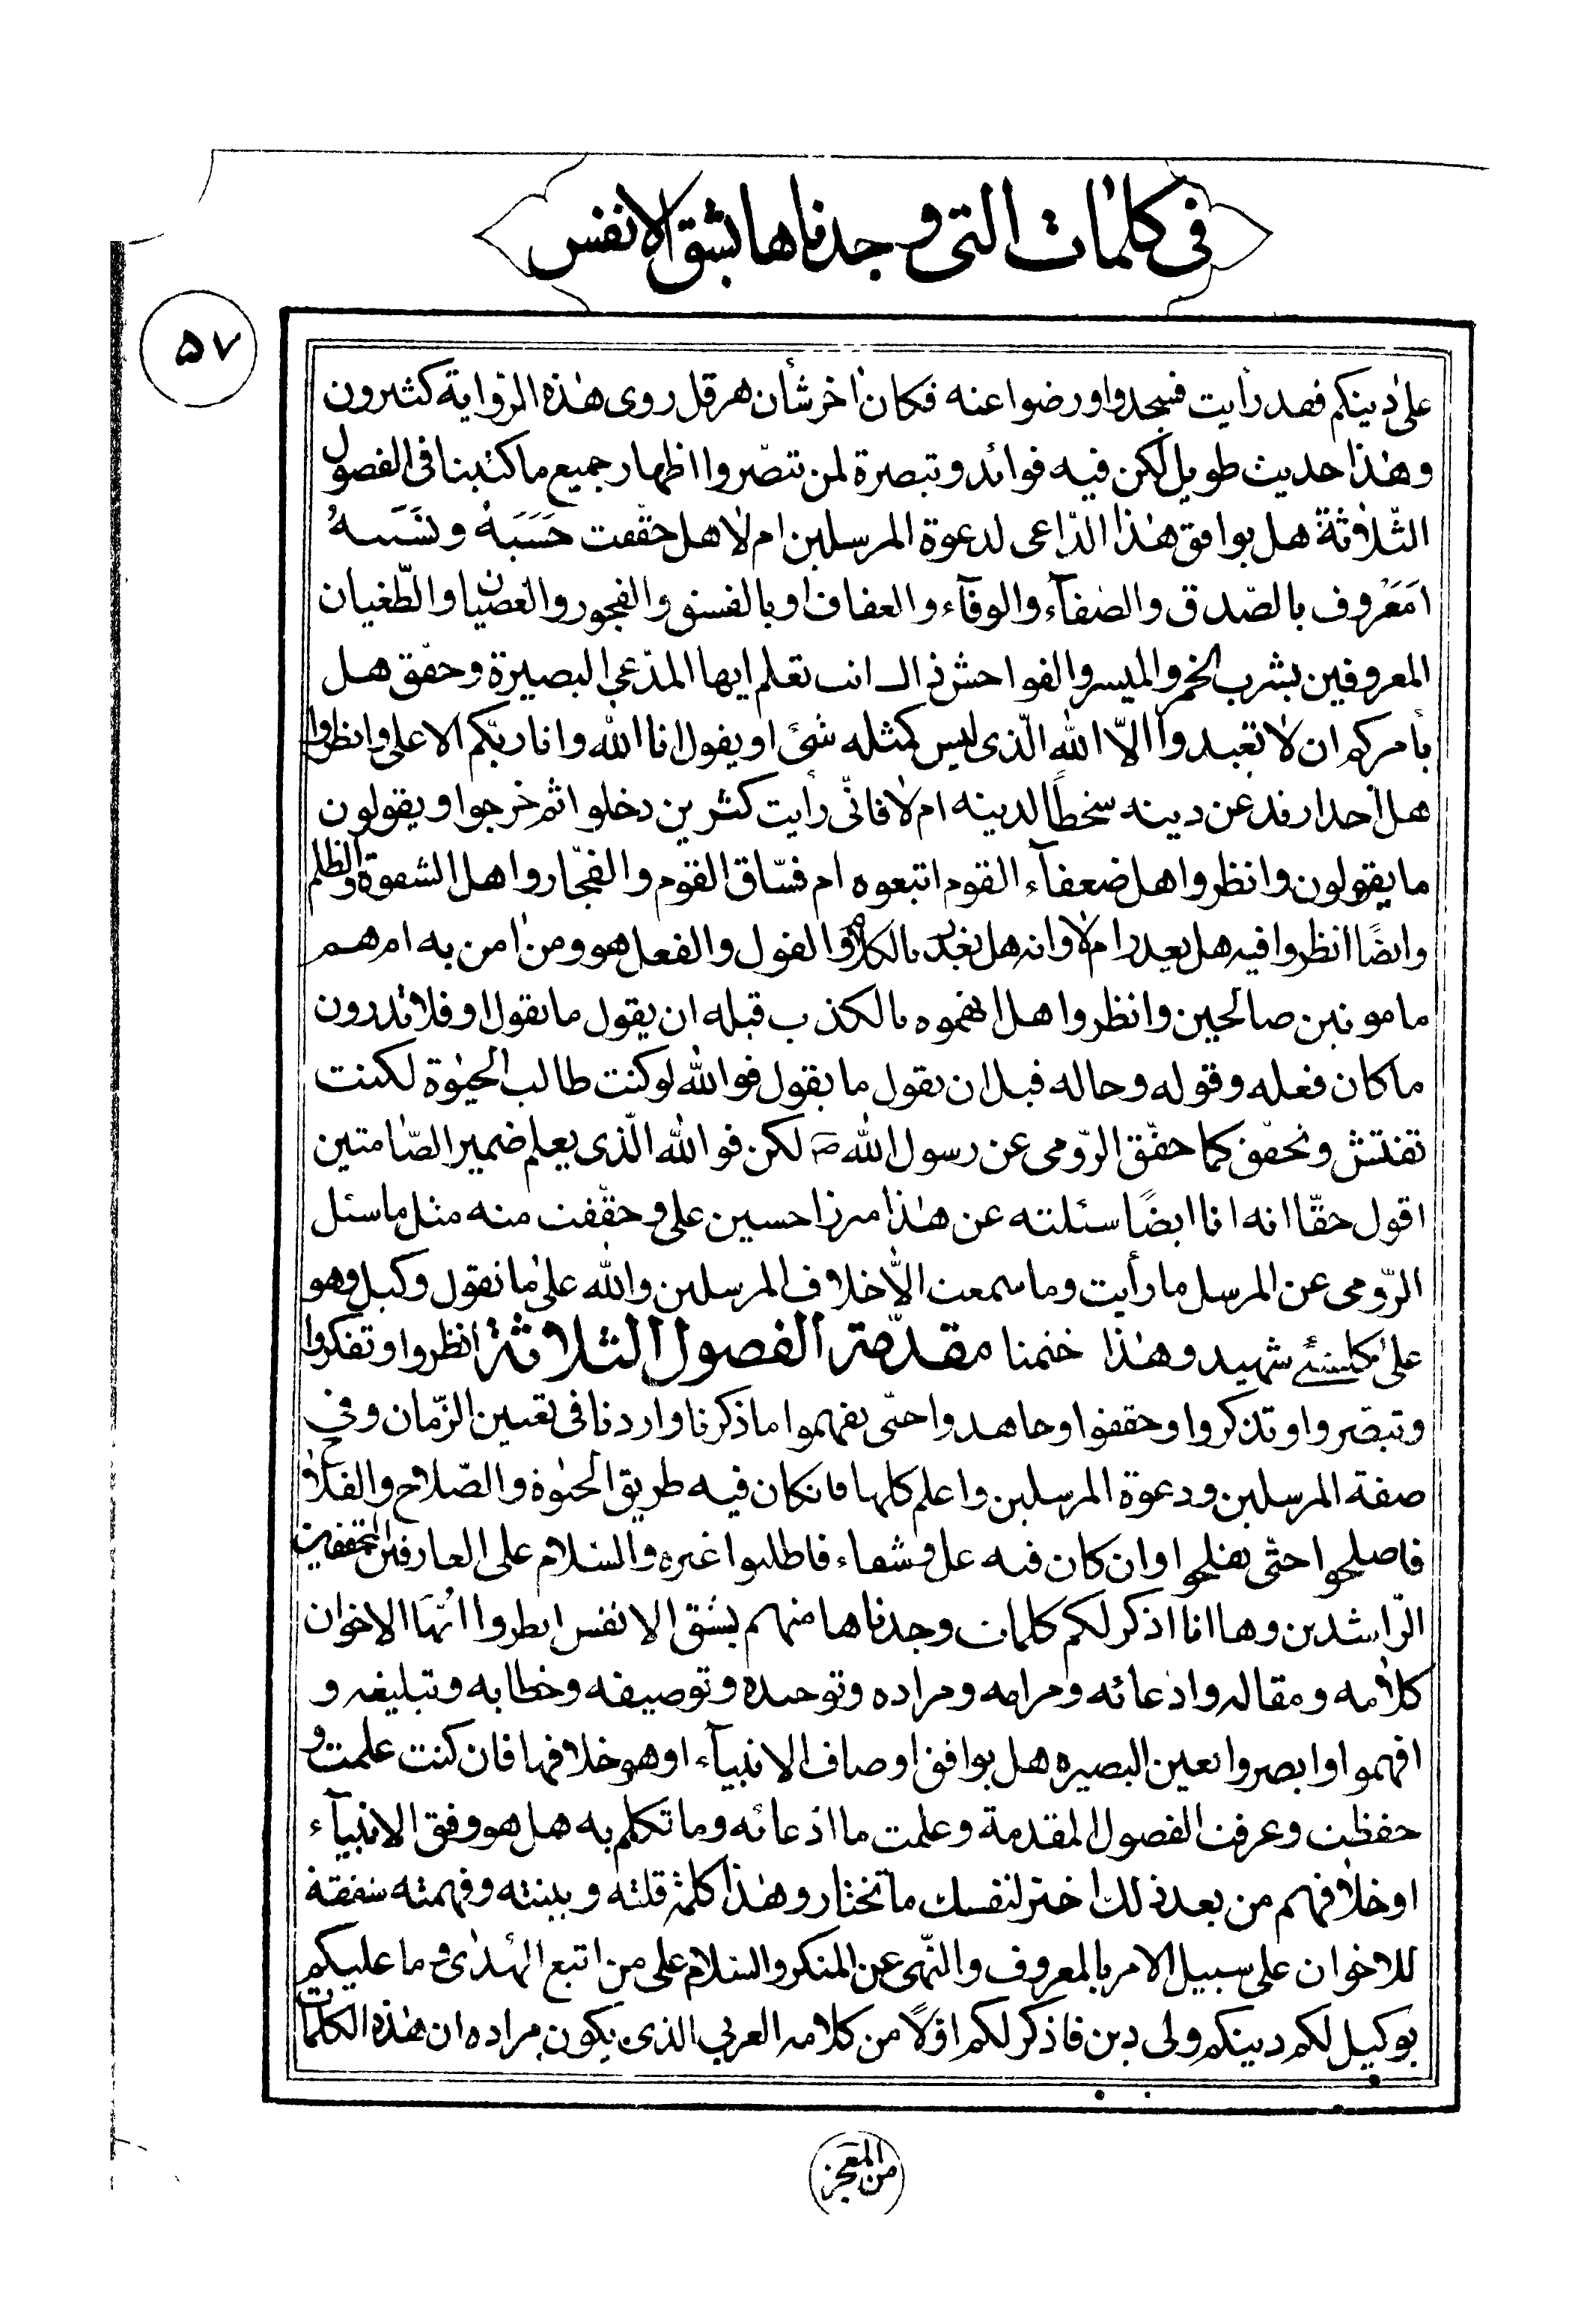 فى كلمات التى وجدناها بشق الانفس
۵۷
على دينكم فقد رأيت فسجدوا ورضوا عنه فكان اخر شأن هرقل روى هذه الرّواية كثيرون
وهذا حديث طويل لكن فيه فوائد وتبصرة لمن تتصّروا اظهار جميع ما كتبنا فى الفصول
الثّلاثة هل يوافق هذا الدّاعى لدعوة المرسلين ام لا هل حقّقت حَسَبَهُ ونَسَبهُ
امَعْروف بالصّدق والصّفآء والوفآء والعفاف او بالفسق والفجور والعصيان والطّغيان
المعروفين بشرب الخمر والميسر والفواحش انت تعلم ايها المدّعى البصيرة وحقّق هل
يأمركم ان لا تعبدوا الّا الله الّذى ليس كمثله شئ او يقول انا الله وانا ربّكم الاعلى وانظروا
هل احد ارتد عن دينه سخطاً لدينه ام لا فانّى رأيت كثيرين دخلوا ثم خرجوا ويقولون
ما يقولون وانظروا هل ضعفآء القوم اتبعوه ام فسّاق القوم والفجّار واهل الشقوة والظلم
وايضًا انظروا فيه هل يغدر ام لا وانه هل يغدر بالكلام والقول والفعل هو ومن امن به ام هم
مامونين صالحين وانظروا هل اتهموه بالكذب قبله ان يقول ما يقول او فلا تدرون
ما كان فعله وقوله وحاله قبل ان يقول ما يقول فوالله لو كنت طالب الحيوة لكنت
تفتش وتحقّق كما حقّق الرّومى عن رسول الله ص لكن فوالله الّذى يعلم ضمير الصّامتين
اقول حقّا انه انا ايضًا سئلته عن هذا مرزا حسين على وحقّقت منه مثل ما سئل
الرّومى عن المرسل ما رأيت وما سمعت الّا خلاف المرسلين والله على ما نقول وكيل وهو
على كلشئ شهيد وهذا ختمنا مقدّمة الفصول الثلاثة انظروا وتفكروا
وتبصّروا وتذكروا وحققوا وجاهدوا حتّى تفهموا ما ذكرنا واردنا فى تعيين الزّمان وفى
صفة المرسلين ودعوة المرسلين واعلم كلها فانكان فيه طريق الحيوة والصّلاح والفلاح
فاصلحوا حتّى تفلحوا وان كان فيه على شفاء فاطلبوا غيره والسّلام على العارفين المحققين
الرّاشدين وها انا اذكر لكم كلمات وجدناها منهم بشق الانفس انظروا ايّها الاخوان
كلامه ومقاله وادّعائه ومرامه ومراده وتوحيده وتوصيفه وخطابه وتبليغه و
افهموا وابصروا بعين البصيره هل يوافق اوصاف الانبيآء او هو خلافها فان كنت علمت و
حفظت وعرفت الفصول المقدمة وعلمت ما ادّعائه وما تكلم به هل هو وفق الانبيآء
او خلافهم من بعد ذلك اختر لنفسك ما تختار وهذا كلمة قلته وبينته وفهمته شفقة
للاخوان على سبيل الامر بالمعروف والنّهى عن المنكر والسّلام على من اتبع الهدى وما عليكم
بوكيل لكم دينكم ولى دين فاذكر لكم اوّلاً من كلامه العربى الذى يكون مراده ان هذه الكلمات
من المعجز